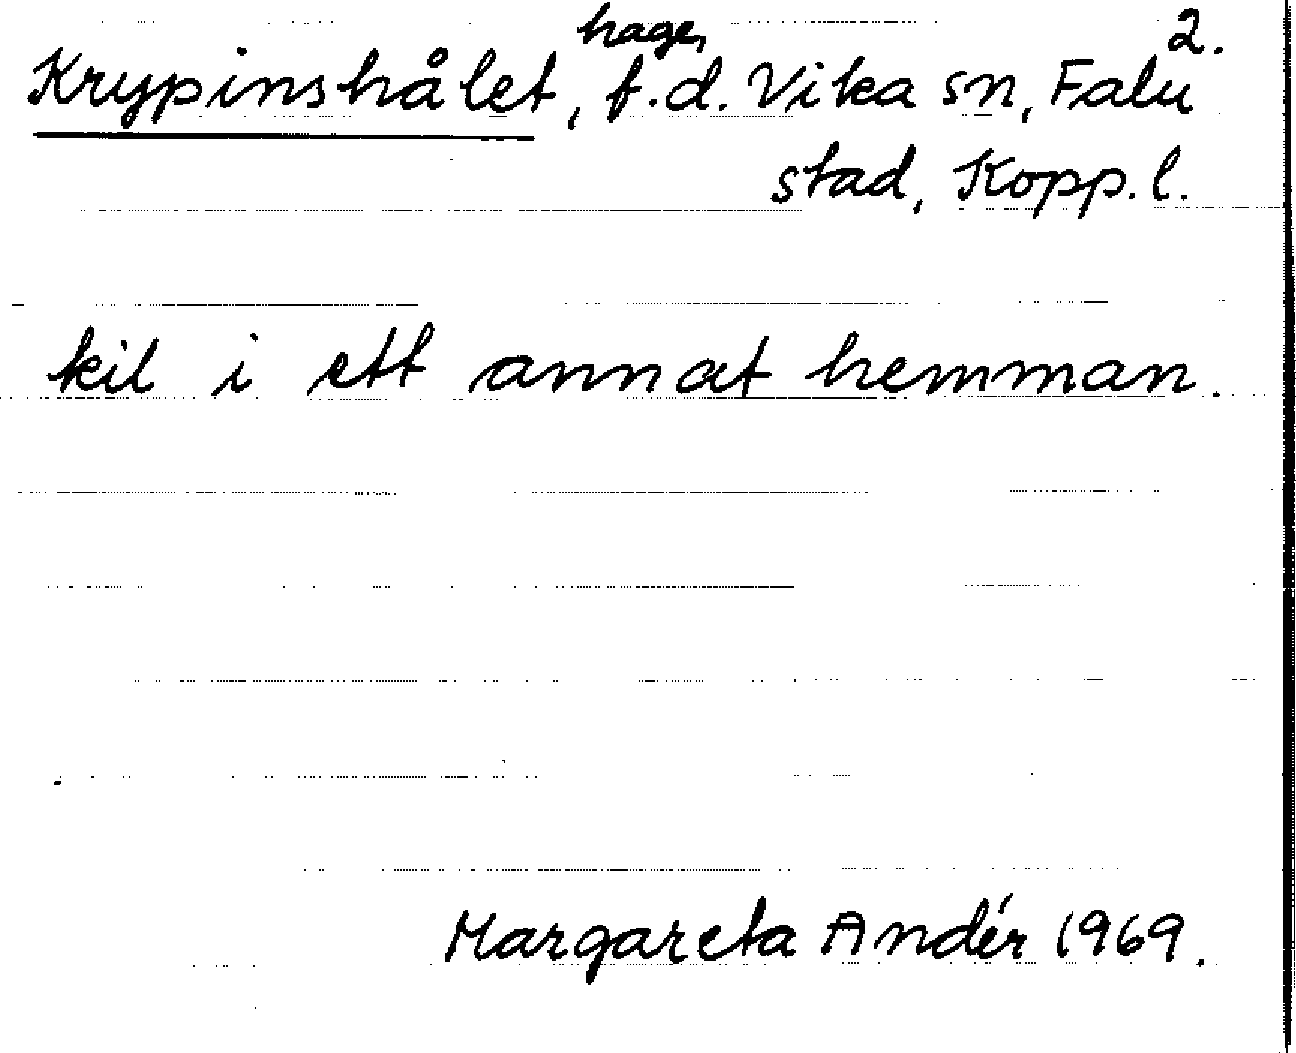 2.
Krypinshålet, hage, f.d. Vika sn, Falu
stad, Kopp. l.
kil i ett annat hemman.
Margareta Andér 1969.